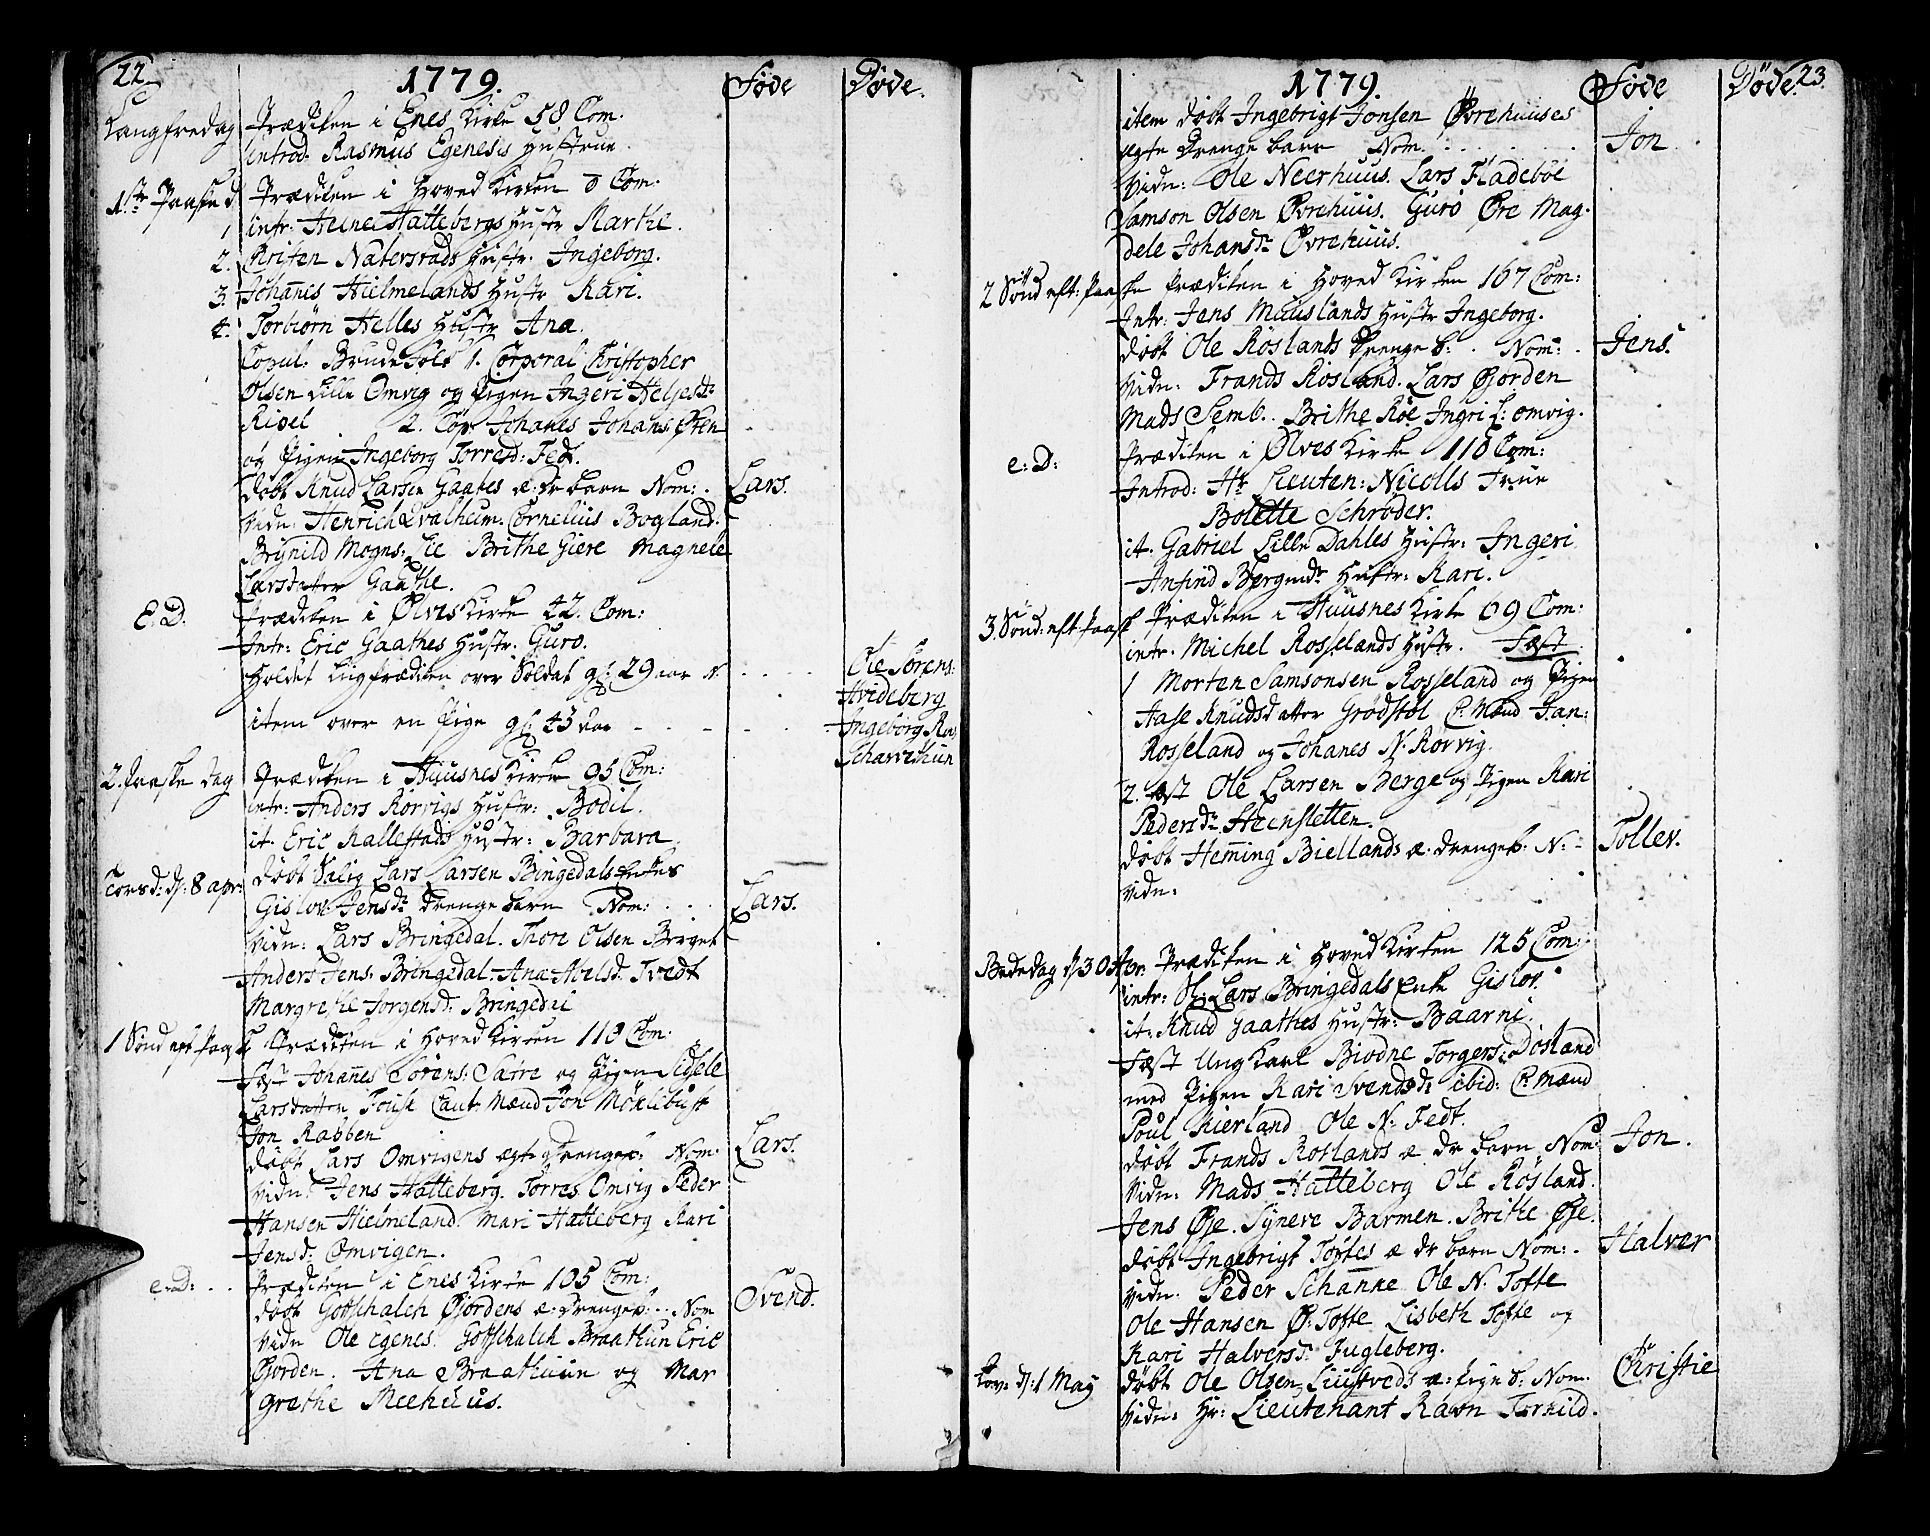 22.
1779.
Føde
Døde.
Langfredag Prædiken i Enes Kirke 58 Com.
introd. Rasmus Egenesis Hustrue.
1ste Paaske d. Prædiken i Hoved Kirken 0 Com.
1 intr: Heine Hattebergs Hustr Marthe.
2. Kristen Naterstads Hustr. Ingeborg.
3. Johanes Hielmelands Hustr Kari.
4. Torbiørn Helles Hustr Ana.
Copul. Brudefolk 1. Corporal Christopher
Olsen Lille Omvig og Pigen Ingeri Helje dr
Ripel 2. Cop. Johanes Johans. Øren
og Pigen Ingeborg Torresd: Fedt.
døbt Knud Larsen Gaathes æ: dr barn Nom: Lars.
Vidn: Henrich Qvalheim. Cornelius Bogland.
Brÿnild Mogns: Lie Brithe Giere Magnele
Larsdatter Gaathe.
E. D. Prædiken i Ølvis Kirke 42. Com:
Intr: Eric Gaathes Hustr: Guro.
Holdet Liigprædiken over Soldat gl: 29 aar N. Ole Sørens:
Hvideberg
item over en Pige gl 43 aar Ingeborg Ras
Scharvethun
2. Paaske dag Prædiken i Huusnes Kirke 95 Com:
intr: Anders Rørvigs Hustr: Bodil.
it. Eric Kallestads Hustr: Barbara
Torsd: d: 8 apr: døbt Salig Lars Larsen Bringedals Enkes
Gislov Jensdr drengebarn Nom: Lars.
Vidn: Lars Bringedal. Thore Olsen Berget
Anders Jens: Bringedal. Ana Abelsd. Tvedt
Margrethe Jørgensd: Bringedal
1 Sønd eft Paaske Prædiken i Hoved Kirken 110 Com.
Fæst Johanes Sørens: Sætre og Pigen Sidsele
Larsdatter Fouse Caut. Mænd Jon Møklebust
Jon Rabben
døbt Lars Omvigens ægte Drengeb: Nom: Lars.
Vidn: Jens Hatteberg. Torres Omvig Peder
Hansen Hielmeland. Mari Hatteberg Kari
Jensd: Omvigen.
e. D: Prædiken i Enes Kirke 105 Com:
døbt Gotschalch Gjordens æ: drengeb: Nom Svend.
Vidn Ole Egenes. Gotschalch Braathun Eric
Gjorden. Ana Braathuun og Mar
grethe Meehuus.
1779.
Føde
Døde.
23.
item døbt Ingebrigt Jonsen Øvrehuuses
ægte Drenge barn Nom. Jon
Vidn: Ole Neerhuus. Lars Fladebøe
Samson Olsen Øvrehuus. Guro Øre Mag.
dele Johansdr Øvrehuus.
2 Sønd eft: Paaske Prædiken i Hoved Kirken 167 Com:
Intr: Jens Muuslands Hustr Ingeborg.
døbt Ole Røslands Drengeb: Nom: Jens.
Vidn: Frands Røsland. Lars Gjorden
Mads Semb. Brithe Røe Ingri L: Omvig.
e: D: Prædiken i Ølves Kirke 110 Com:
Introd: Hr Lieuten: Nicolls Frue
Bolette Schrøder.
it. Gabriel Lille Dahles Hustr: Ingeri
Anfind Hustr: Kari.
3. Sønd: eft Paask Prædiken i Huusnes Kirke 69 Com:
intr. Michel Rosselands Hustr. Fæst
1 Morten Samsonsen Rosseland og Pigen
Aase Knudsdatter Grødstøl C. Mænd Jan:
Rosseland og Johanes N. Rørvig.
2. Fæst Ole Larsen Berge og Pigen Kari
Pedersdr Steensletten.
døbt Heming Biellands æ. drengeb: N: Tollev.
Vidn:
Bededag d. 30 Apr. Prædiken i Hoved Kirken 125 Com:
intr: Sl: Lars Bringedals Enke Gislov.
it: Knud Gaathes Hustr: Baarni.
Fæst Ungkarl Biodne Torgers: Dosland
med Pigen Kari Svendsd: ibid: C. Mænd
Poul Kierland Ole N. Fedt.
døbt Frands Røslands æ dr barn Nom: Jon.
Vidn: Mads Hatteberg Ole Røsland.
Jens Øye. Syneve Barmen. Brithe Øye.
døbt Ingebrigt Toftes æ dr barn Nom: Halver
Vidn: Peder Schanke Ole N. Tofte
Ole Hansen Ø: Tofte Lisbeth Tofte og
Kari Halversdr Fugleberg.
Løv: d: 1 May døbt Ole Olsen Liustveds æ: pigeb: Nom. Christie
Vidn: Hr: Lieutenant Ravn Torkild.